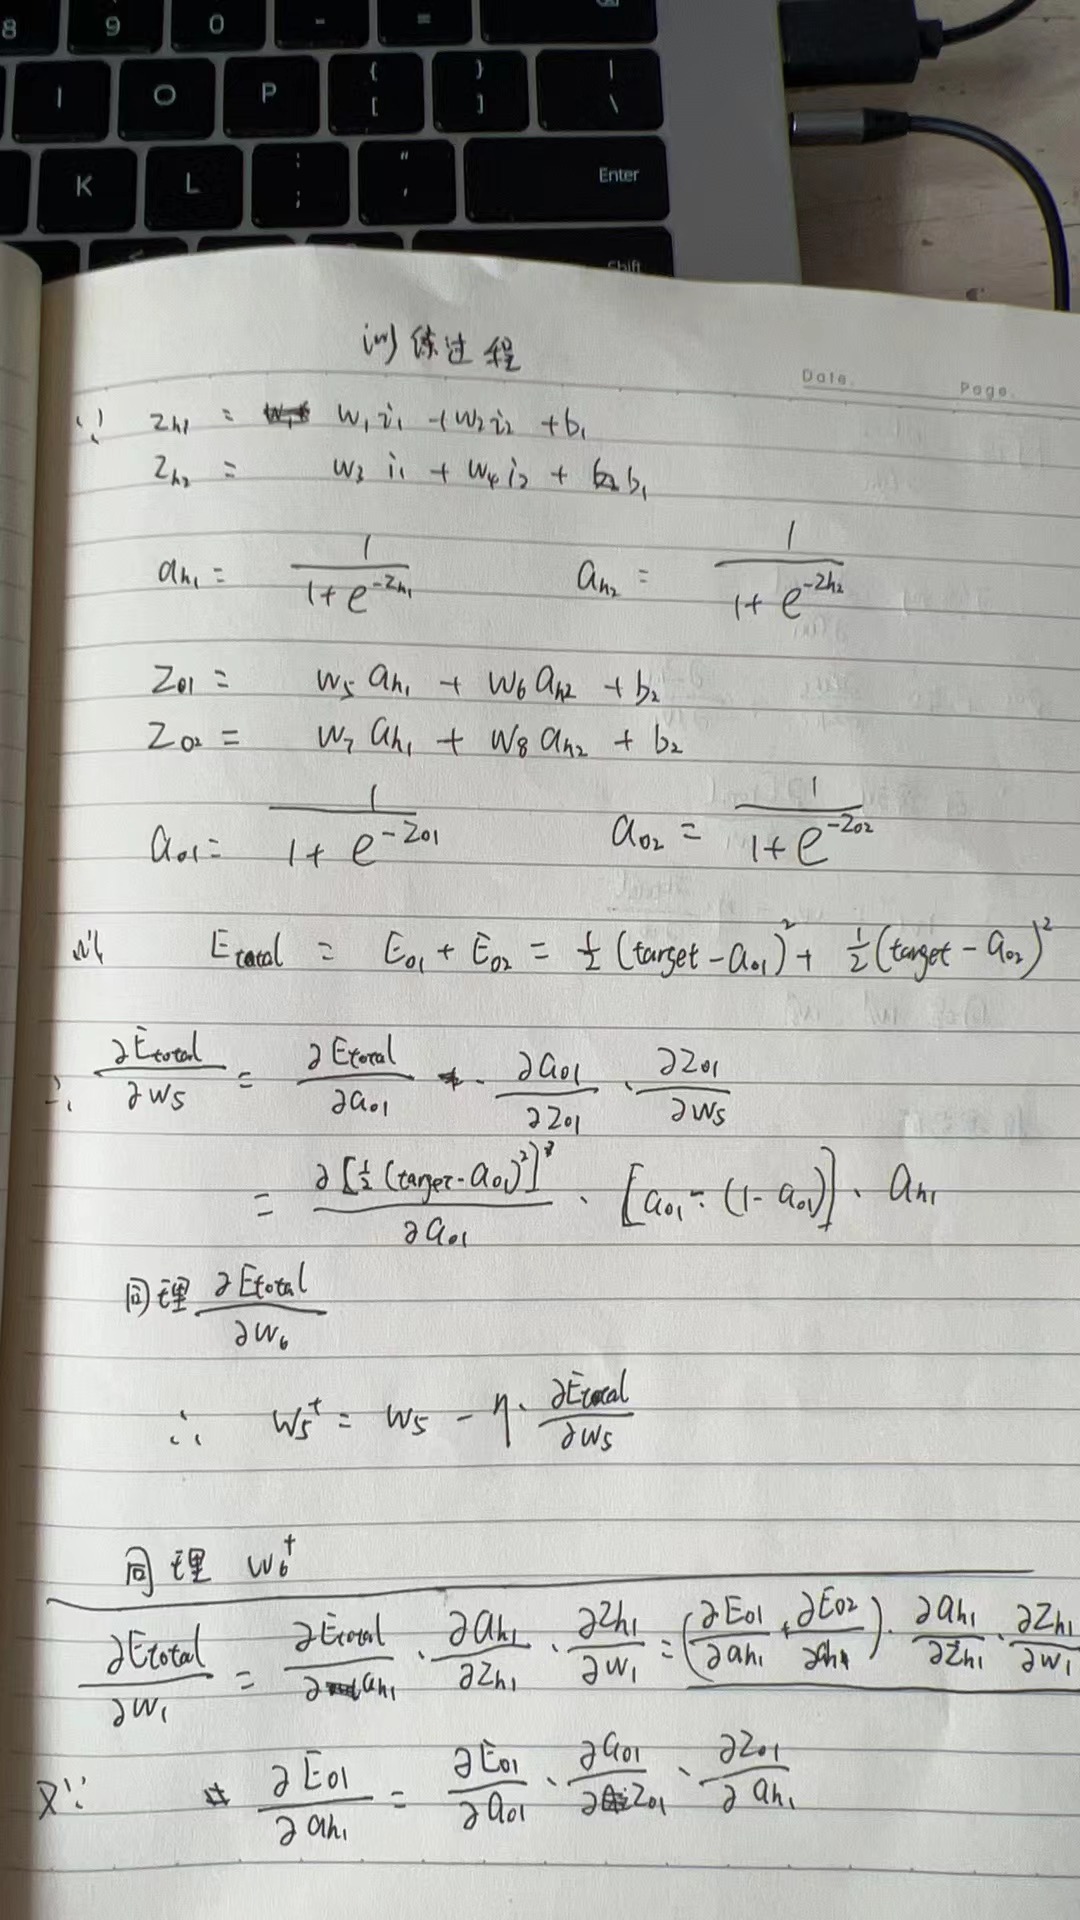 8 9 0 - =
I O P { [ } ] | \
K L : ; " ' Enter
Shift
训练过程
Date. Page.
∵ Zh1 = w1i1 + w2i2 + b1
Zh2 = w3 i1 + w4 i2 + b1
ah1 = 1/(1+e^(-Zh1)) ah2 = 1/(1+e^(-Zh2))
Z01 = w5 ah1 + w6 ah2 + b2
Z02 = w7 ah1 + w8 ah2 + b2
a01 = 1/(1+e^(-Z01)) a02 = 1/(1+e^(-Z02))
Etotal = E01 + E02 = 1/2 (target - a01)^2 + 1/2 (target - a02)^2
∴ ∂Etotal/∂w5 = ∂Etotal/∂a01 · ∂a01/∂Z01 · ∂Z01/∂w5
= ∂[1/2 (target - a01)^2]/∂a01 · [a01 · (1 - a01)] · ah1
同理 ∂Etotal/∂w6
∴ w5^+ = w5 - η · ∂Etotal/∂w5
同理 w6^+
∂Etotal/∂w1 = ∂Etotal/∂ah1 · ∂ah1/∂Zh1 · ∂Zh1/∂w1 = (∂E01/∂ah1 + ∂E02/∂ah1) · ∂ah1/∂Zh1 · ∂Zh1/∂w1
又∵ ∂E01/∂ah1 = ∂E01/∂a01 · ∂a01/∂Z01 · ∂Z01/∂ah1